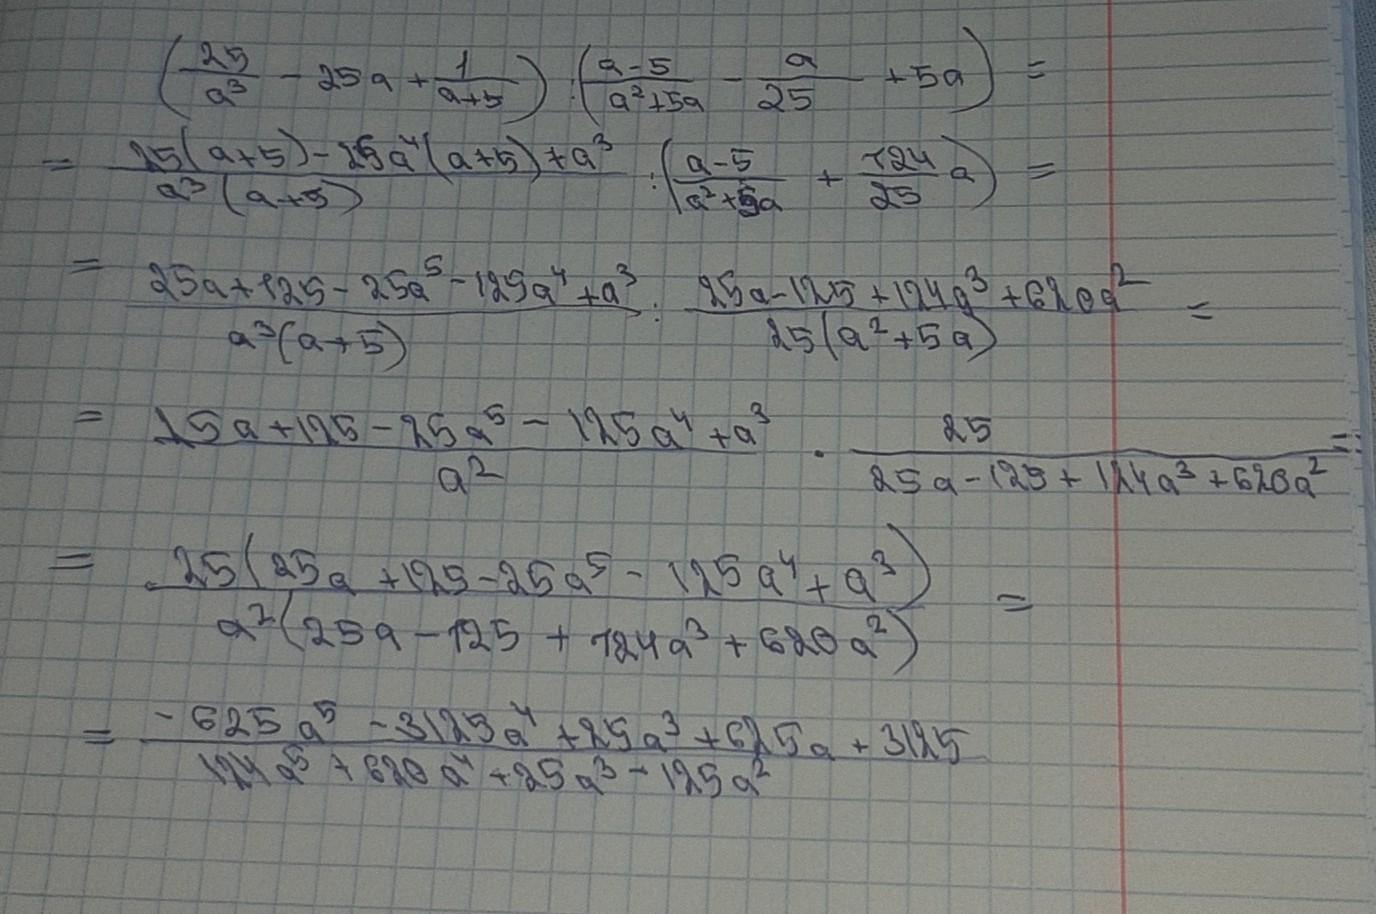 (25/a³ - 25a + 1/(a+5)) : ((a-5)/(a²+5a) - a/25 + 5a) =
= (25(a+5) - 25a⁴(a+5) + a³)/(a³(a+5)) : ((a-5)/(a²+5a) + 124/25 a) =
= (25a+125-25a⁵-125a⁴+a³)/(a³(a+5)) : (25a-125+124a³+620a²)/(25(a²+5a)) =
= (25a+125-25a⁵-125a⁴+a³)/a² · 25/(25a-125+124a³+620a²) =
= 25(25a+125-25a⁵-125a⁴+a³)/(a²(25a-125+124a³+620a²)) =
= (-625a⁵-3125a⁴+25a³+625a+3125)/(124a⁵+620a⁴+25a³-125a²)